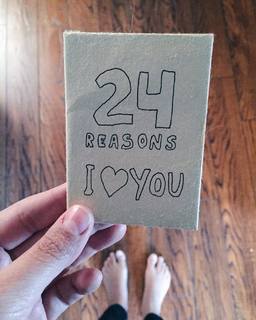 24
REASONS
I ♡ YOU